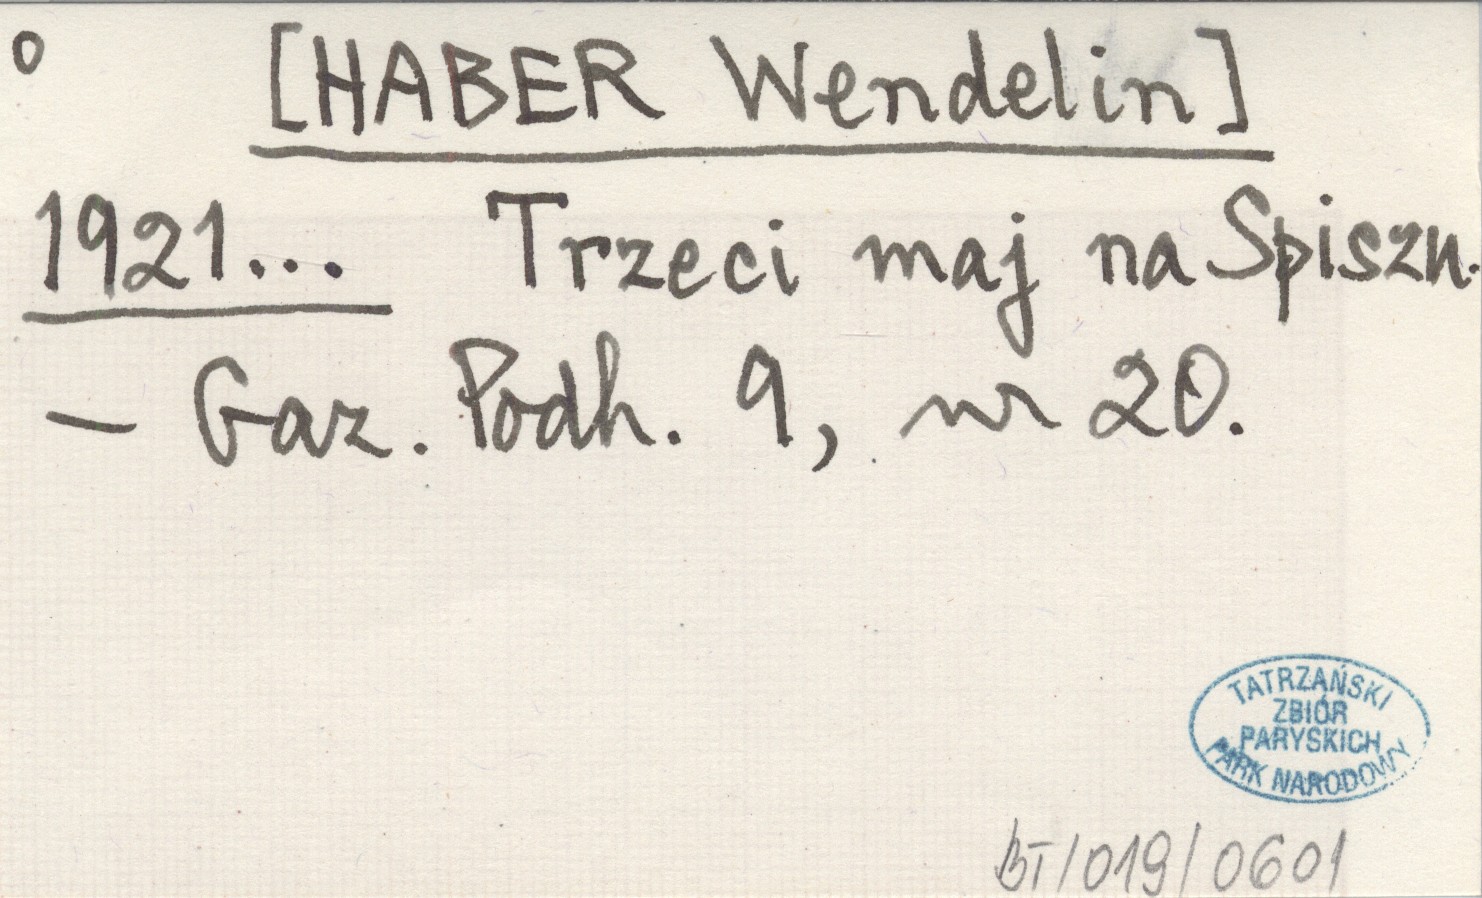 o [HABER Wendelin]
1921... Trzeci maj na Spiszu.
– Gaz. Podh. 9, nr 20.
TATRZAŃSKI
ZBIÓR
PARYSKICH
PARK NARODOWY
BT/019/0601